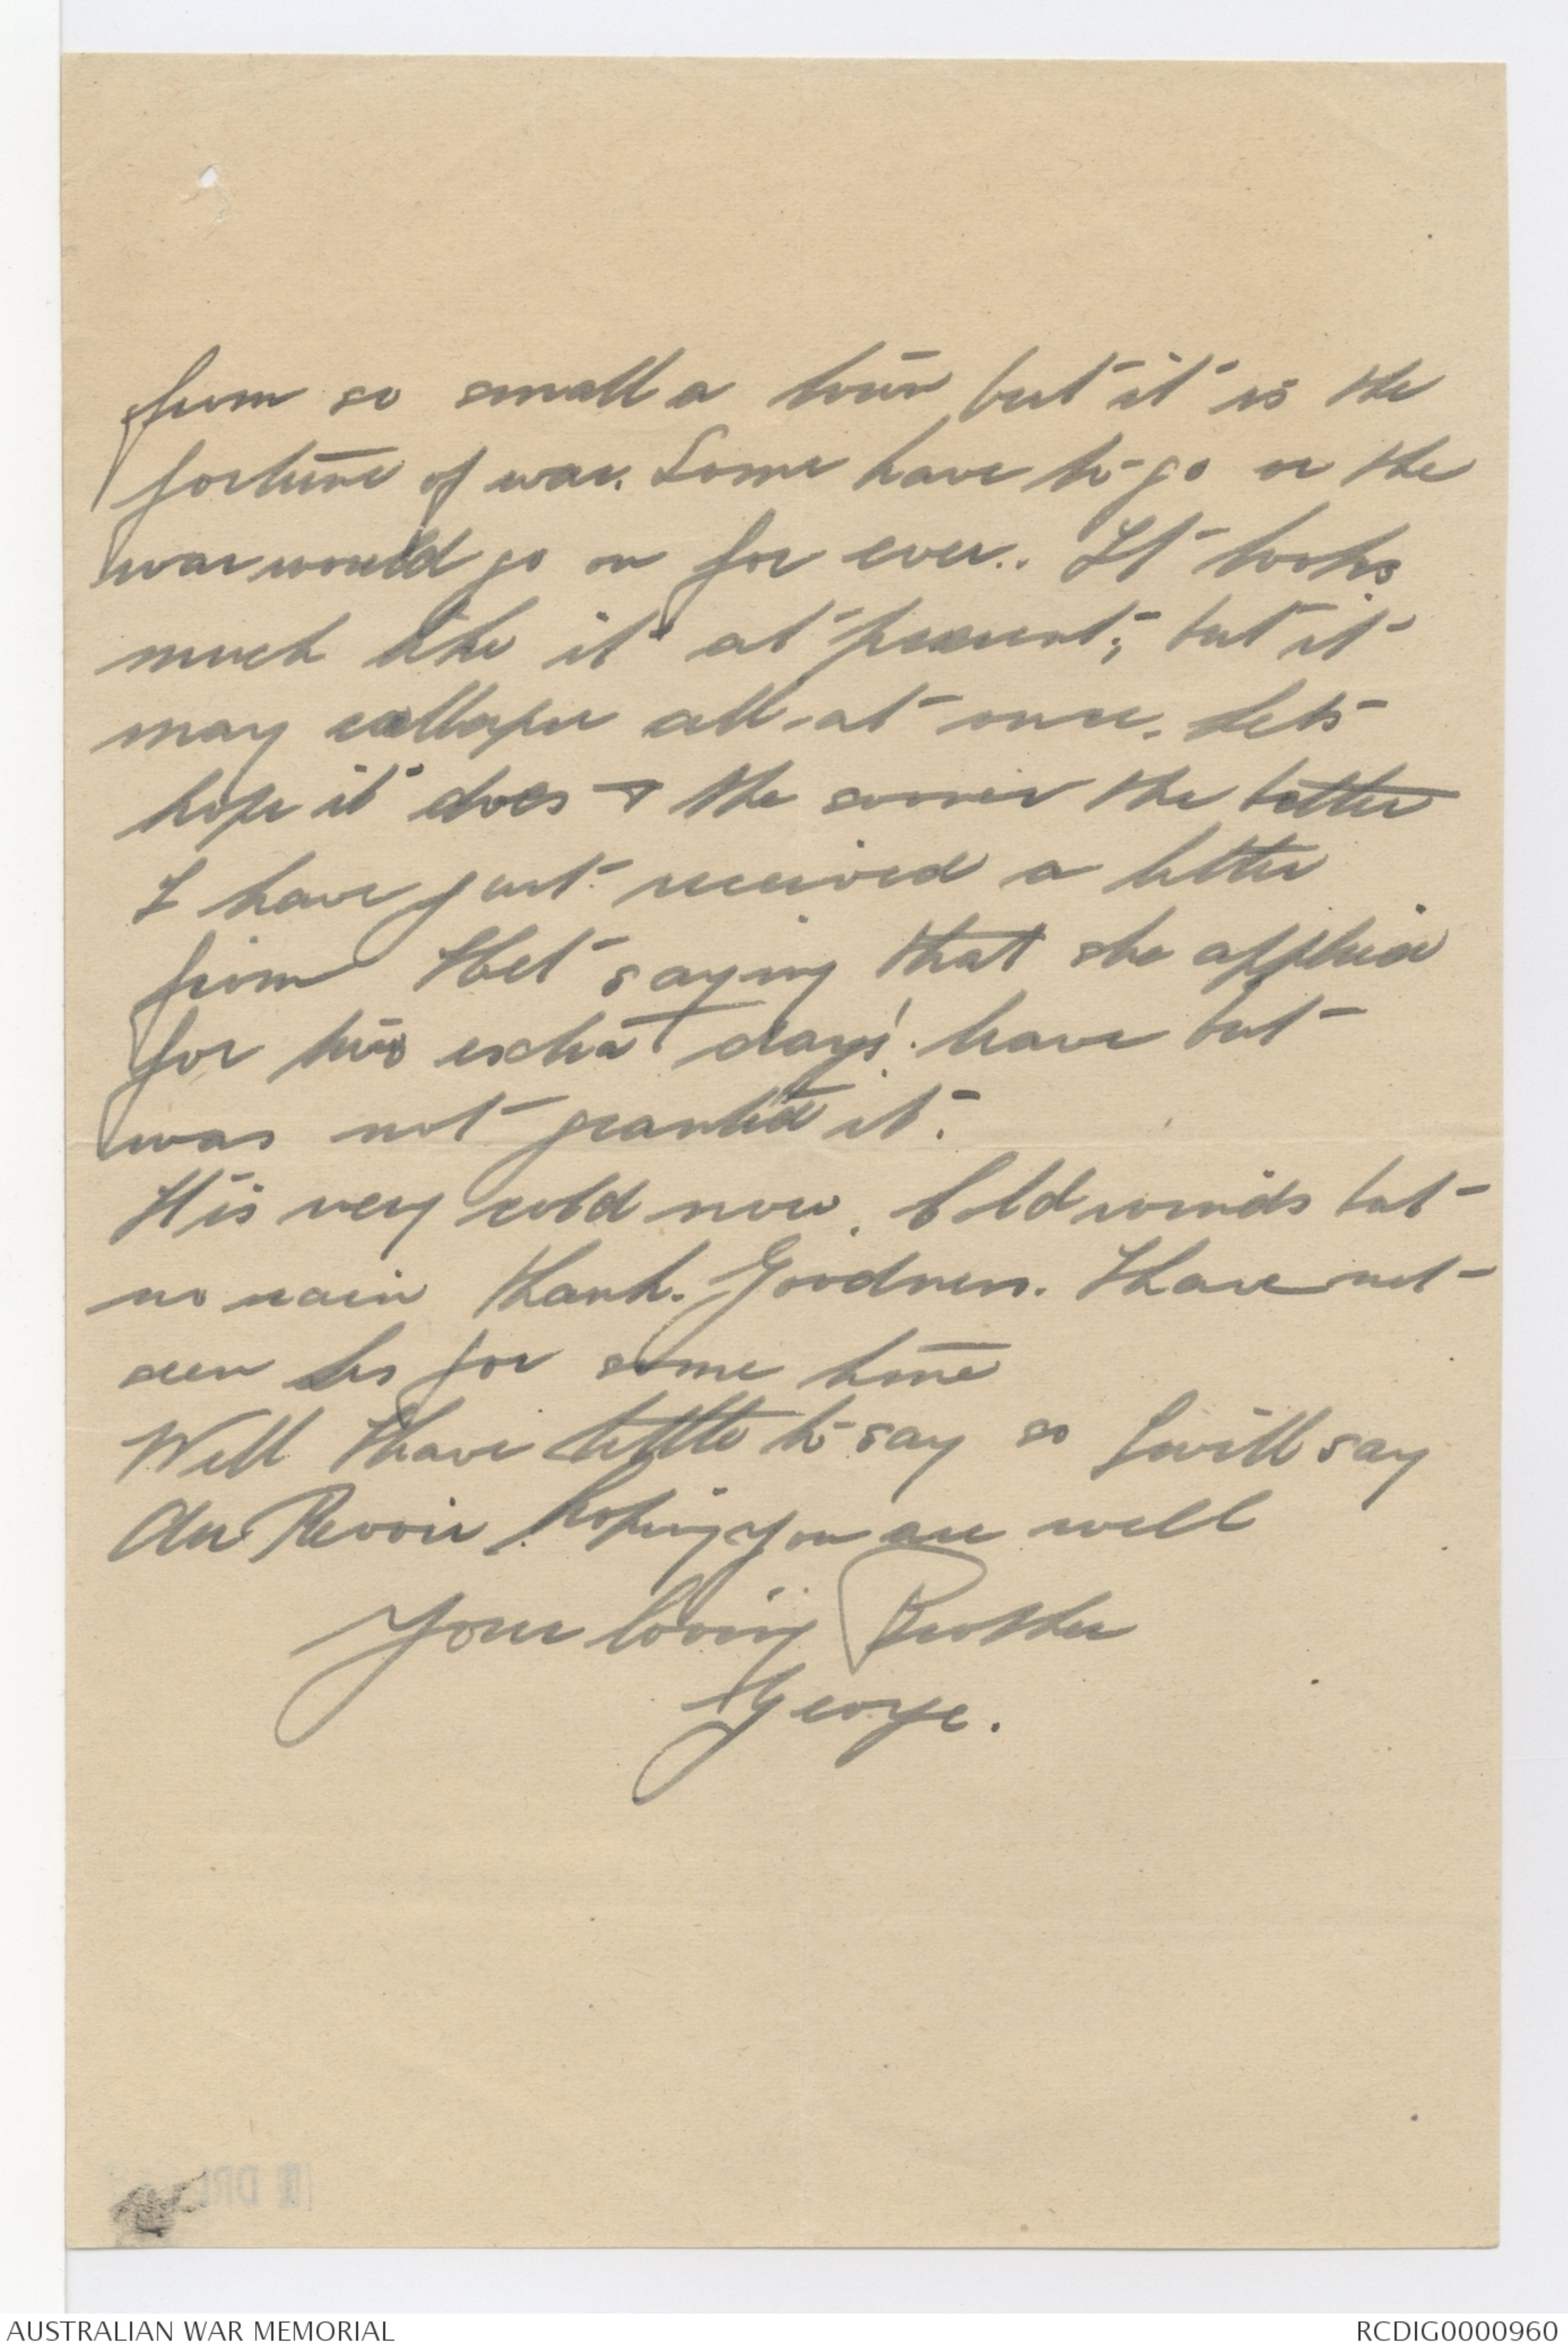 from so small a town but it is the
fortune of war. Some have to go or the
war would go on for ever.. It looks
much like it at present; but it
may collapse all at once. Lets
hope it does & the sooner the better
I have just received a letter
from Het saying that she applied
for two extra days' leave but
was not granted it.
It is very cold now. Cold winds but
no rain thank. Goodness. I have not
seen Les for some time
Well I have little to say so I will say
Au Revoir hoping you are well
Your loving Brother
George.
AUSTRALIAN WAR MEMORIAL
RCDIG0000960